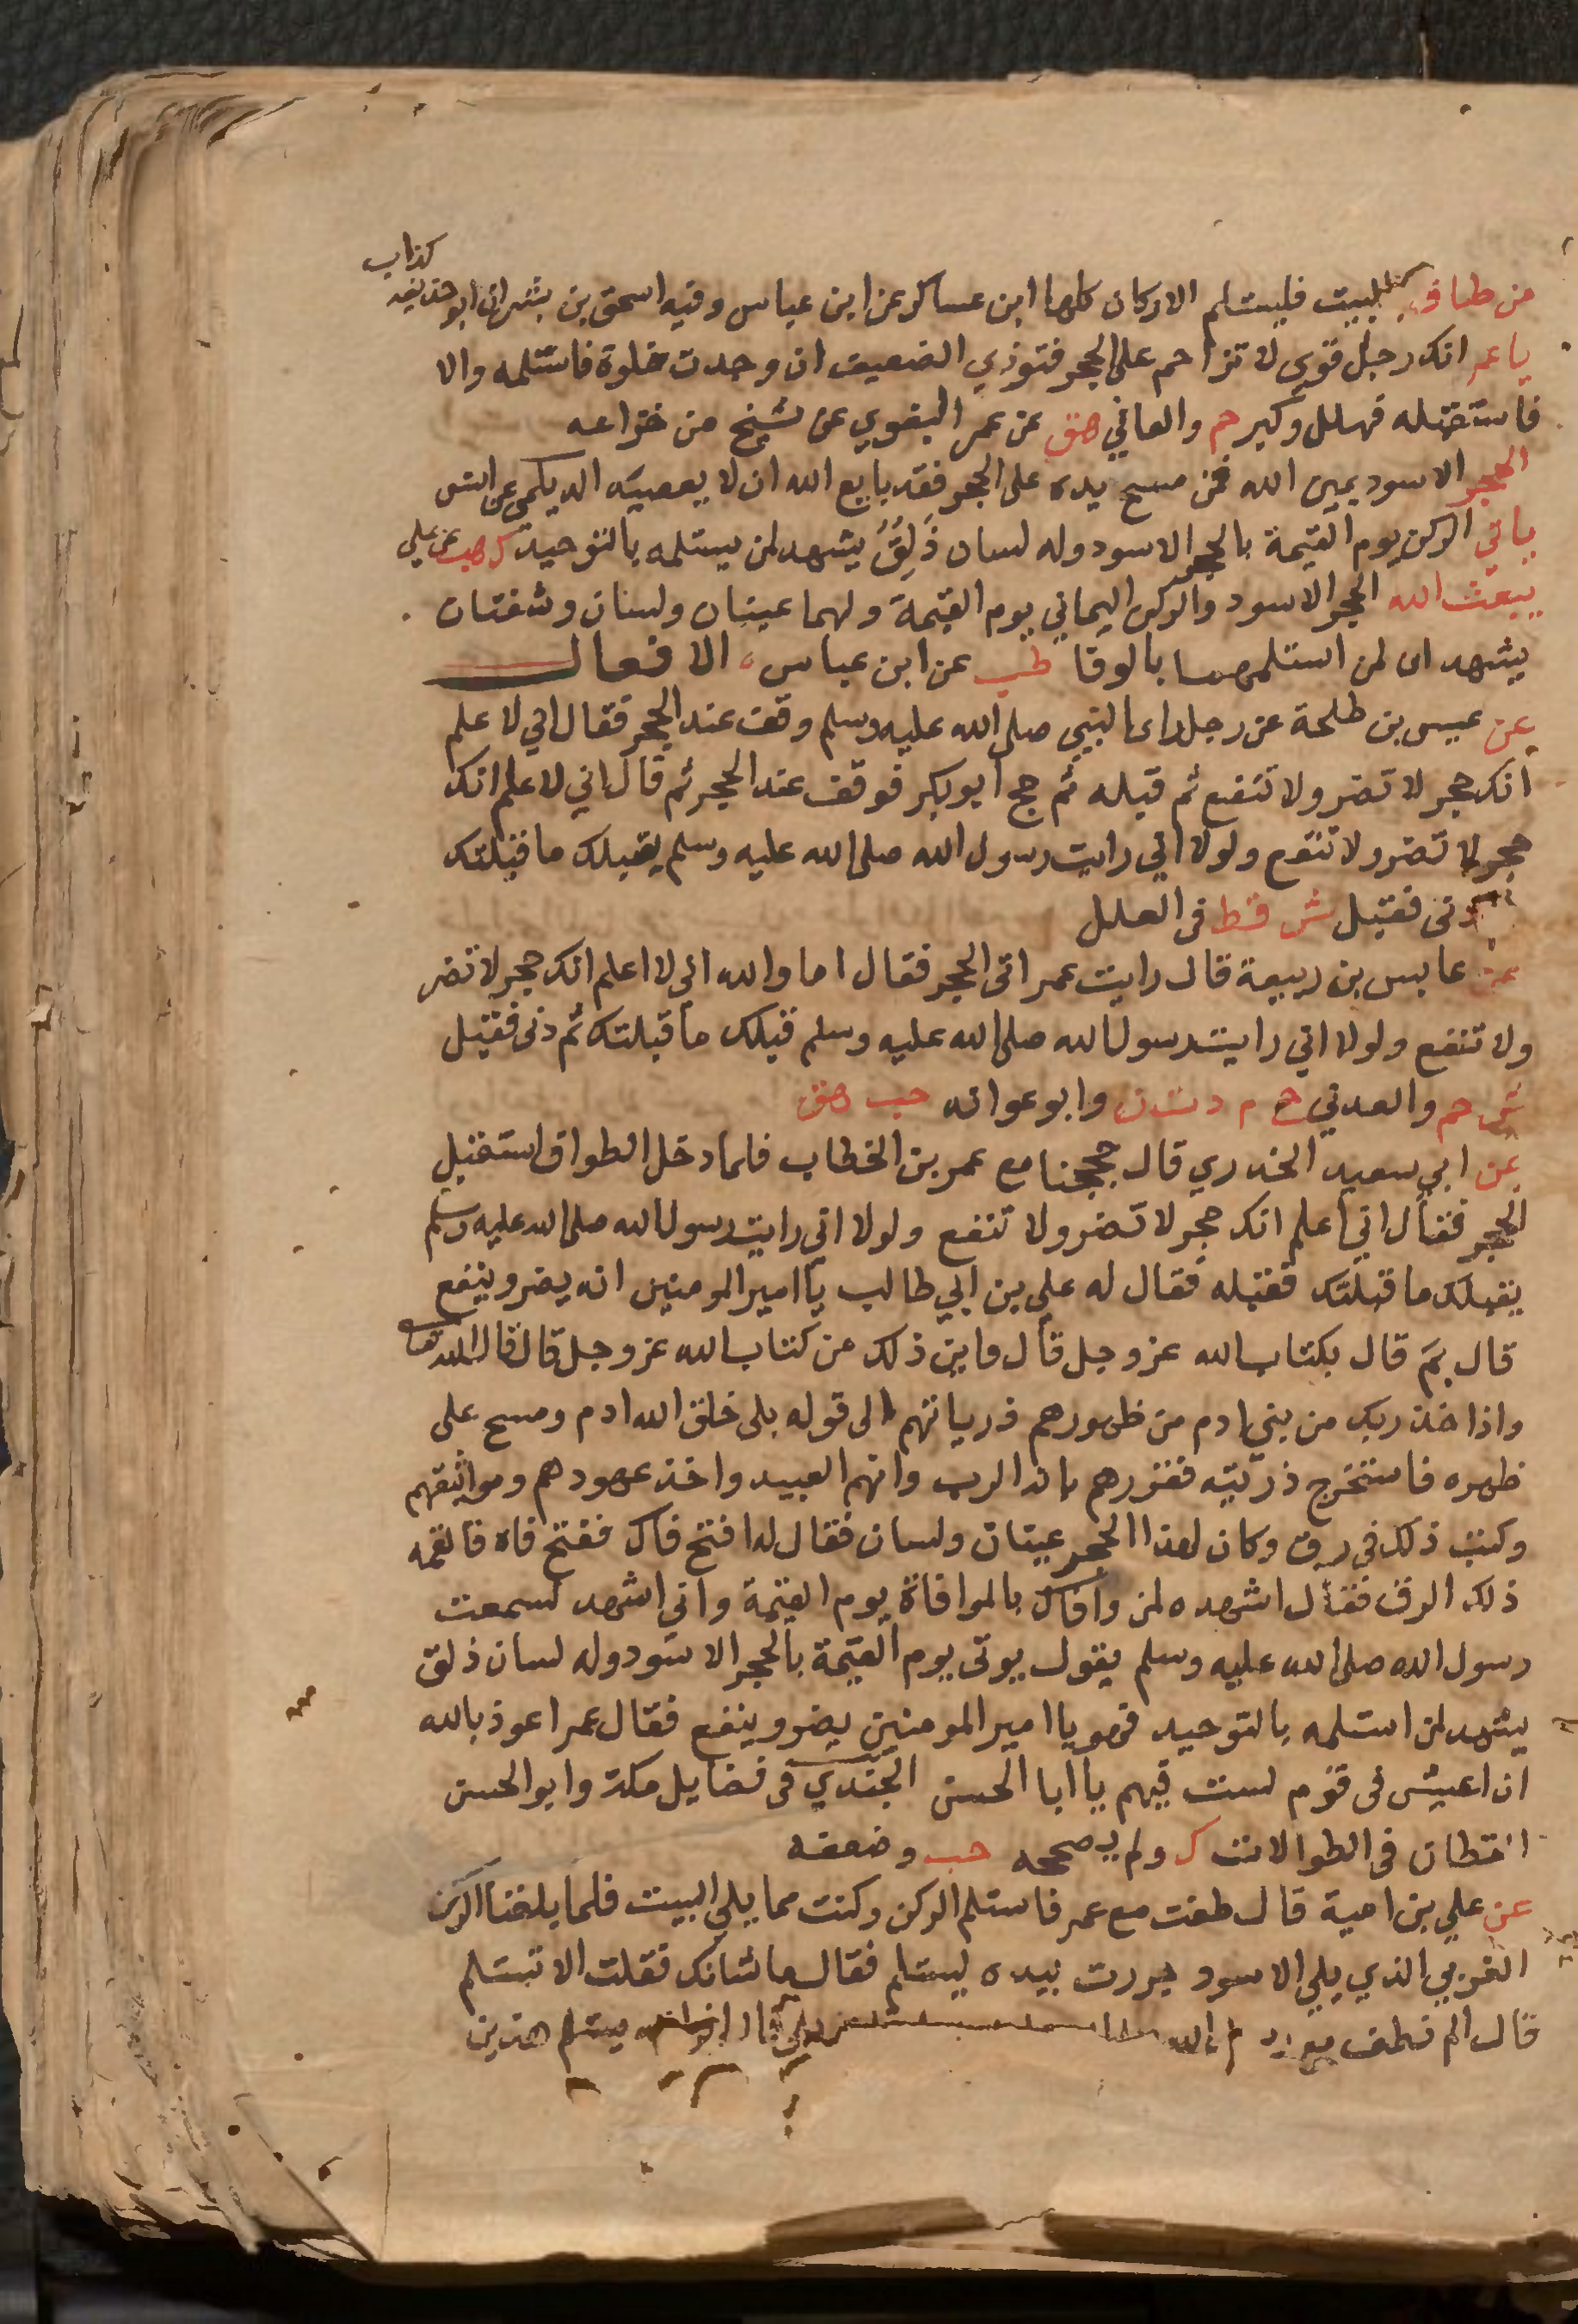 كذاب
من طاف بالبيت فليستلم الاركان كلها ابن عساكر عن ابن عباس وفيه اسحق بن بشر ابو حذيفة
يا عمر انك رجل قوي لا تزاحم على الحجر فتوذي الضعيف ان وجدت خلوة فاستلمه والا
فاستقبله فهلل وكبر حم والعدني هق عن عمر البغوي عن شيخ من خزاعه
الحجر الاسود يمين الله فمن مسح يده على الحجر فقد بايع الله ان لا يعصيه الديلمي عن انس
ياتي الركن يوم القيمة بالحجر الاسود وله لسان ذَلِقٌ يشهد لمن يستلمه بالتوحيد ك هب عن علي
يبعث الله الحجر الاسود والركن اليماني يوم القيمة ولهما عينان ولسان وشفتان
يشهدان لمن استلمهما بالوفا طب عن ابن عباس، الافعال
عن عيسى بن طلحة عن رجل راى النبي صلى الله عليه وسلم وقف عند الحجر فقال اني لاعلم
انك حجر لا تضر ولا تنفع ثم قبله ثم حج ابو بكر فوقف عند الحجر ثم قال اني لاعلم انك
حجر لا تضر ولا تنفع ولولا اني رايت رسول الله صلى الله عليه وسلم يقبلك ما قبلتك
دنى فقبل ش قط فى العلل
عن عابس بن ربيعة قال رايت عمر اتى الحجر فقال اما والله اني لا اعلم انك حجر لا تضر
ولا تنفع ولولا اني رايت رسول الله صلى الله عليه وسلم قبلك ما قبلتك ثم دنى فقبل
ش حم والعدني خ م د ت ن وابو عوانه حب هق
عن ابي سعيد الخدري قال حججنا مع عمر بن الخطاب فلما دخل الطواف استقبل
الحجر فقال اني اعلم انك حجر لا تضر ولا تنفع ولولا اني رايت رسول الله صلى الله عليه وسلم
يقبلك ما قبلتك فقبله فقال له علي بن ابي طالب يا امير المومنين انه يضر وينفع
قال بمَ قال بكتاب الله عز وجل قال واين ذلك من كتاب الله عز وجل قال قال الله تعا
واذ اخذ ربك من بني ادم من ظهورهم ذرياتهم الى قوله بلى خلق الله ادم ومسح على
ظهره فاستخرج ذريته فقررهم بانه الرب وانهم العبيد واخذ عهودهم ومواثقهم
وكتب ذلك في رق وكان لهذا الحجر عينان ولسان فقال له افتح فاك ففتح فاه فالقمه
ذلك الرق فقال اشهد ه لمن وافاك بالموافاة يوم القيمة واني اشهد لسمعت
رسول الله صلى الله عليه وسلم يقول يوتى يوم القيمة بالحجر الاسود وله لسان ذلق
يشهد لمن استلمه بالتوحيد فهو يا امير المومنين يضر وينفع فقال عمر اعوذ بالله
ان اعيش فى قوم لست فيهم يا ابا الحسن الجَنَدي فى فضايل مكة وابو الحسن
القطان فى الطوالات ك ولم يصححه حب وضعفه
عن علي بن امية قال طفت مع عمر فاستلم الركن وكنت مما يلي البيت فلما بلغنا الركن
الغربي الذي يلي الاسود جررت بيده ليستلم فقال ما شانك فقلت الا تستلم
قال الم تطف مع يستلم هذين